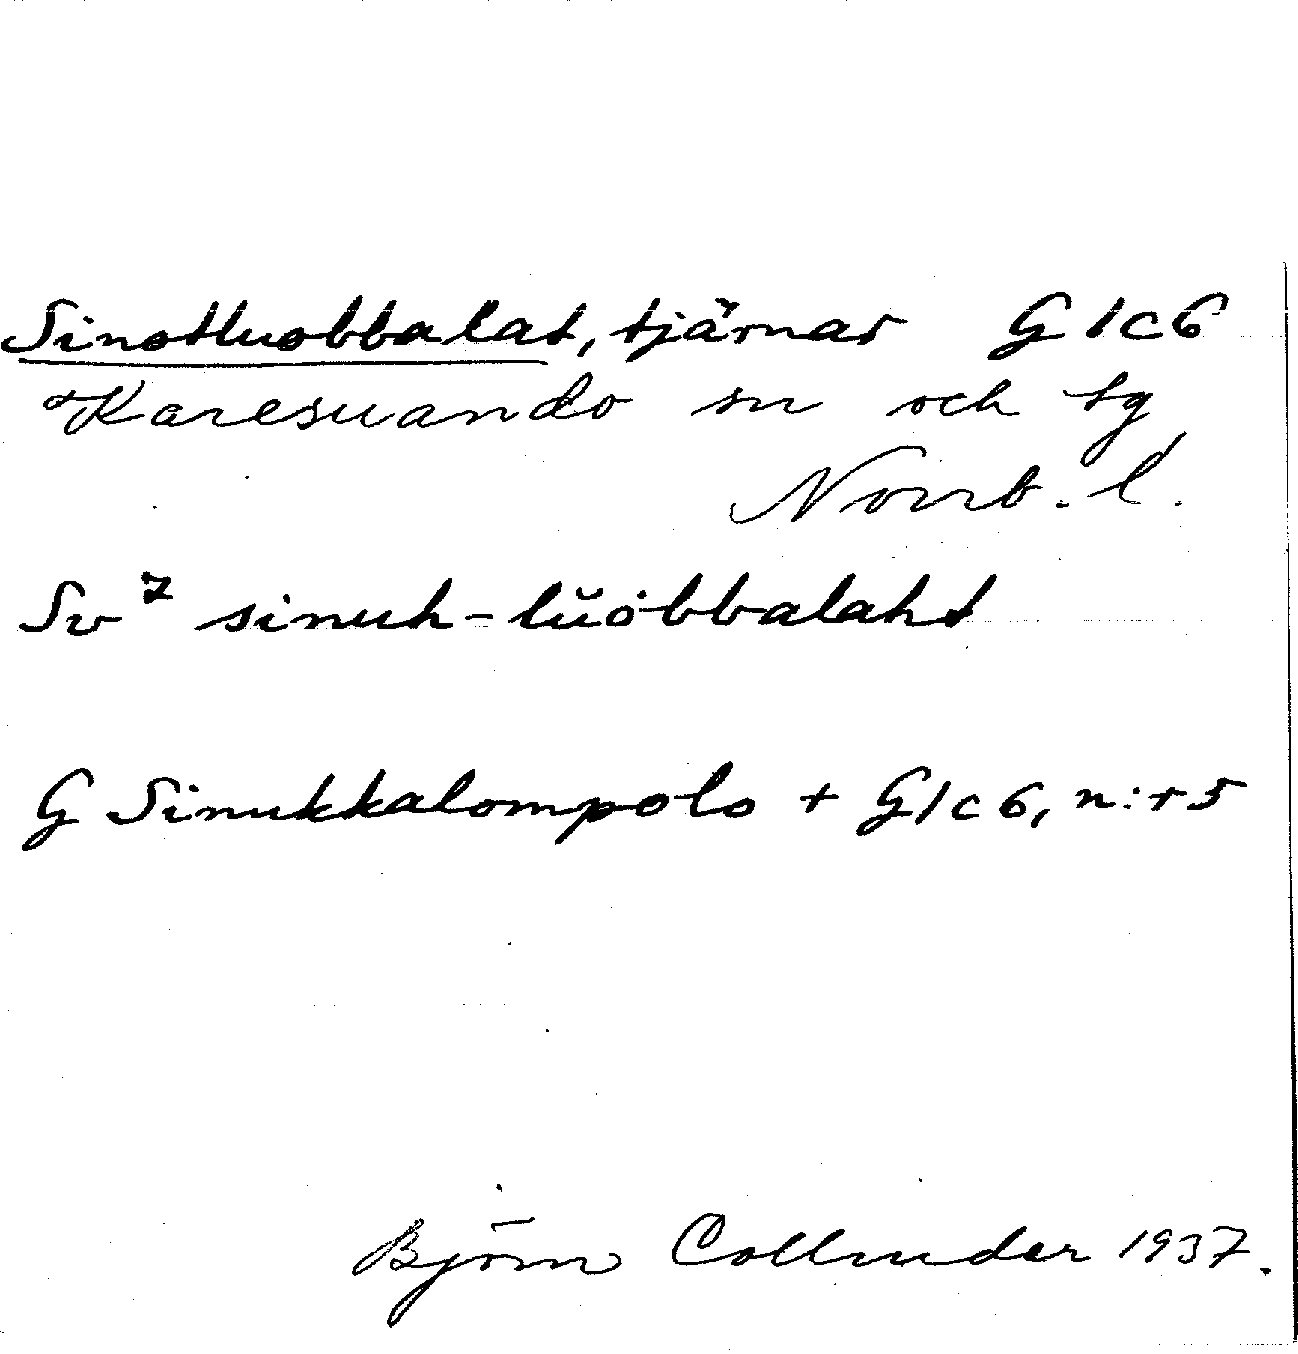 Sinotluobbalat, tjärnar G1c6
Karesuando sn och tg
Norrb. l.
Sv⁷ sinuh-lŭȯbbalaht
G Sinukkalompolo + G1c6, n:r 5
Björn Collinder 1937.